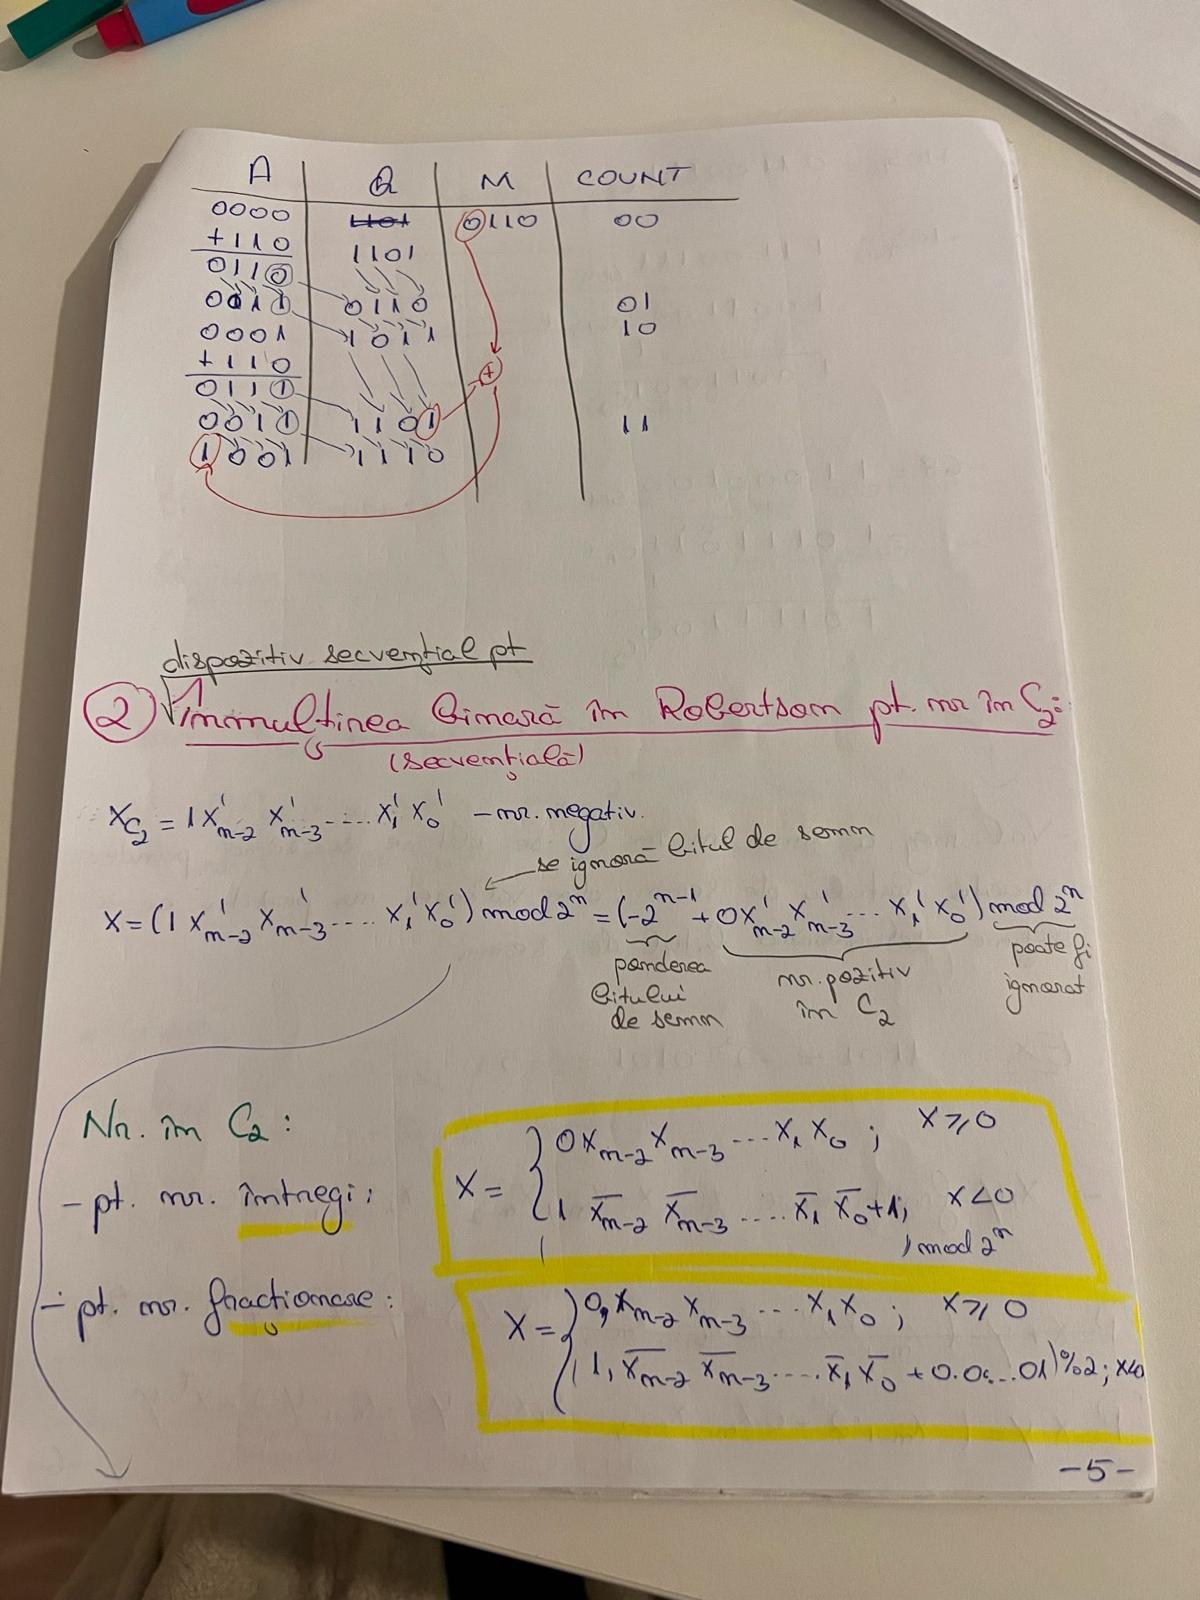 A Q M COUNT
0000 1101 0110 00
+110 1101
0110
0011 0110 01
0001 1011 10
+110
0111 +
0011 1101 11
1001 1110
dispozitiv secvențial pt
2 Înmulțirea binară în Robertson pt. nr în C₂:
(secvențială)
X_C₂ = 1 x'ₙ₋₂ x'ₙ₋₃ .... x'₁ x'₀ – nr. negativ.
se ignoră bitul de semn
X = (1 x'ₙ₋₂ x'ₙ₋₃ .... x'₁ x'₀) mod 2ⁿ = (-2ⁿ⁻¹ + 0x'ₙ₋₂ x'ₙ₋₃ ... x'₁ x'₀) mod 2ⁿ
ponderea bitului de semn
nr. pozitiv în C₂
poate fi ignorat
Nr. în C₂:
- pt. nr. întregi:
X = { 0xₙ₋₂ xₙ₋₃ ... x₁ x₀ ; X ≥ 0
1 x̄ₙ₋₂ x̄ₙ₋₃ .... x̄₁ x̄₀ + 1; X < 0
, mod 2ⁿ
- pt. nr. fracționare:
X = { 0, xₙ₋₂ xₙ₋₃ ... x₁ x₀ ; X ≥ 0
(1, x̄ₙ₋₂ x̄ₙ₋₃ .... x̄₁ x̄₀ + 0.0...01)%2; X<0
-5-